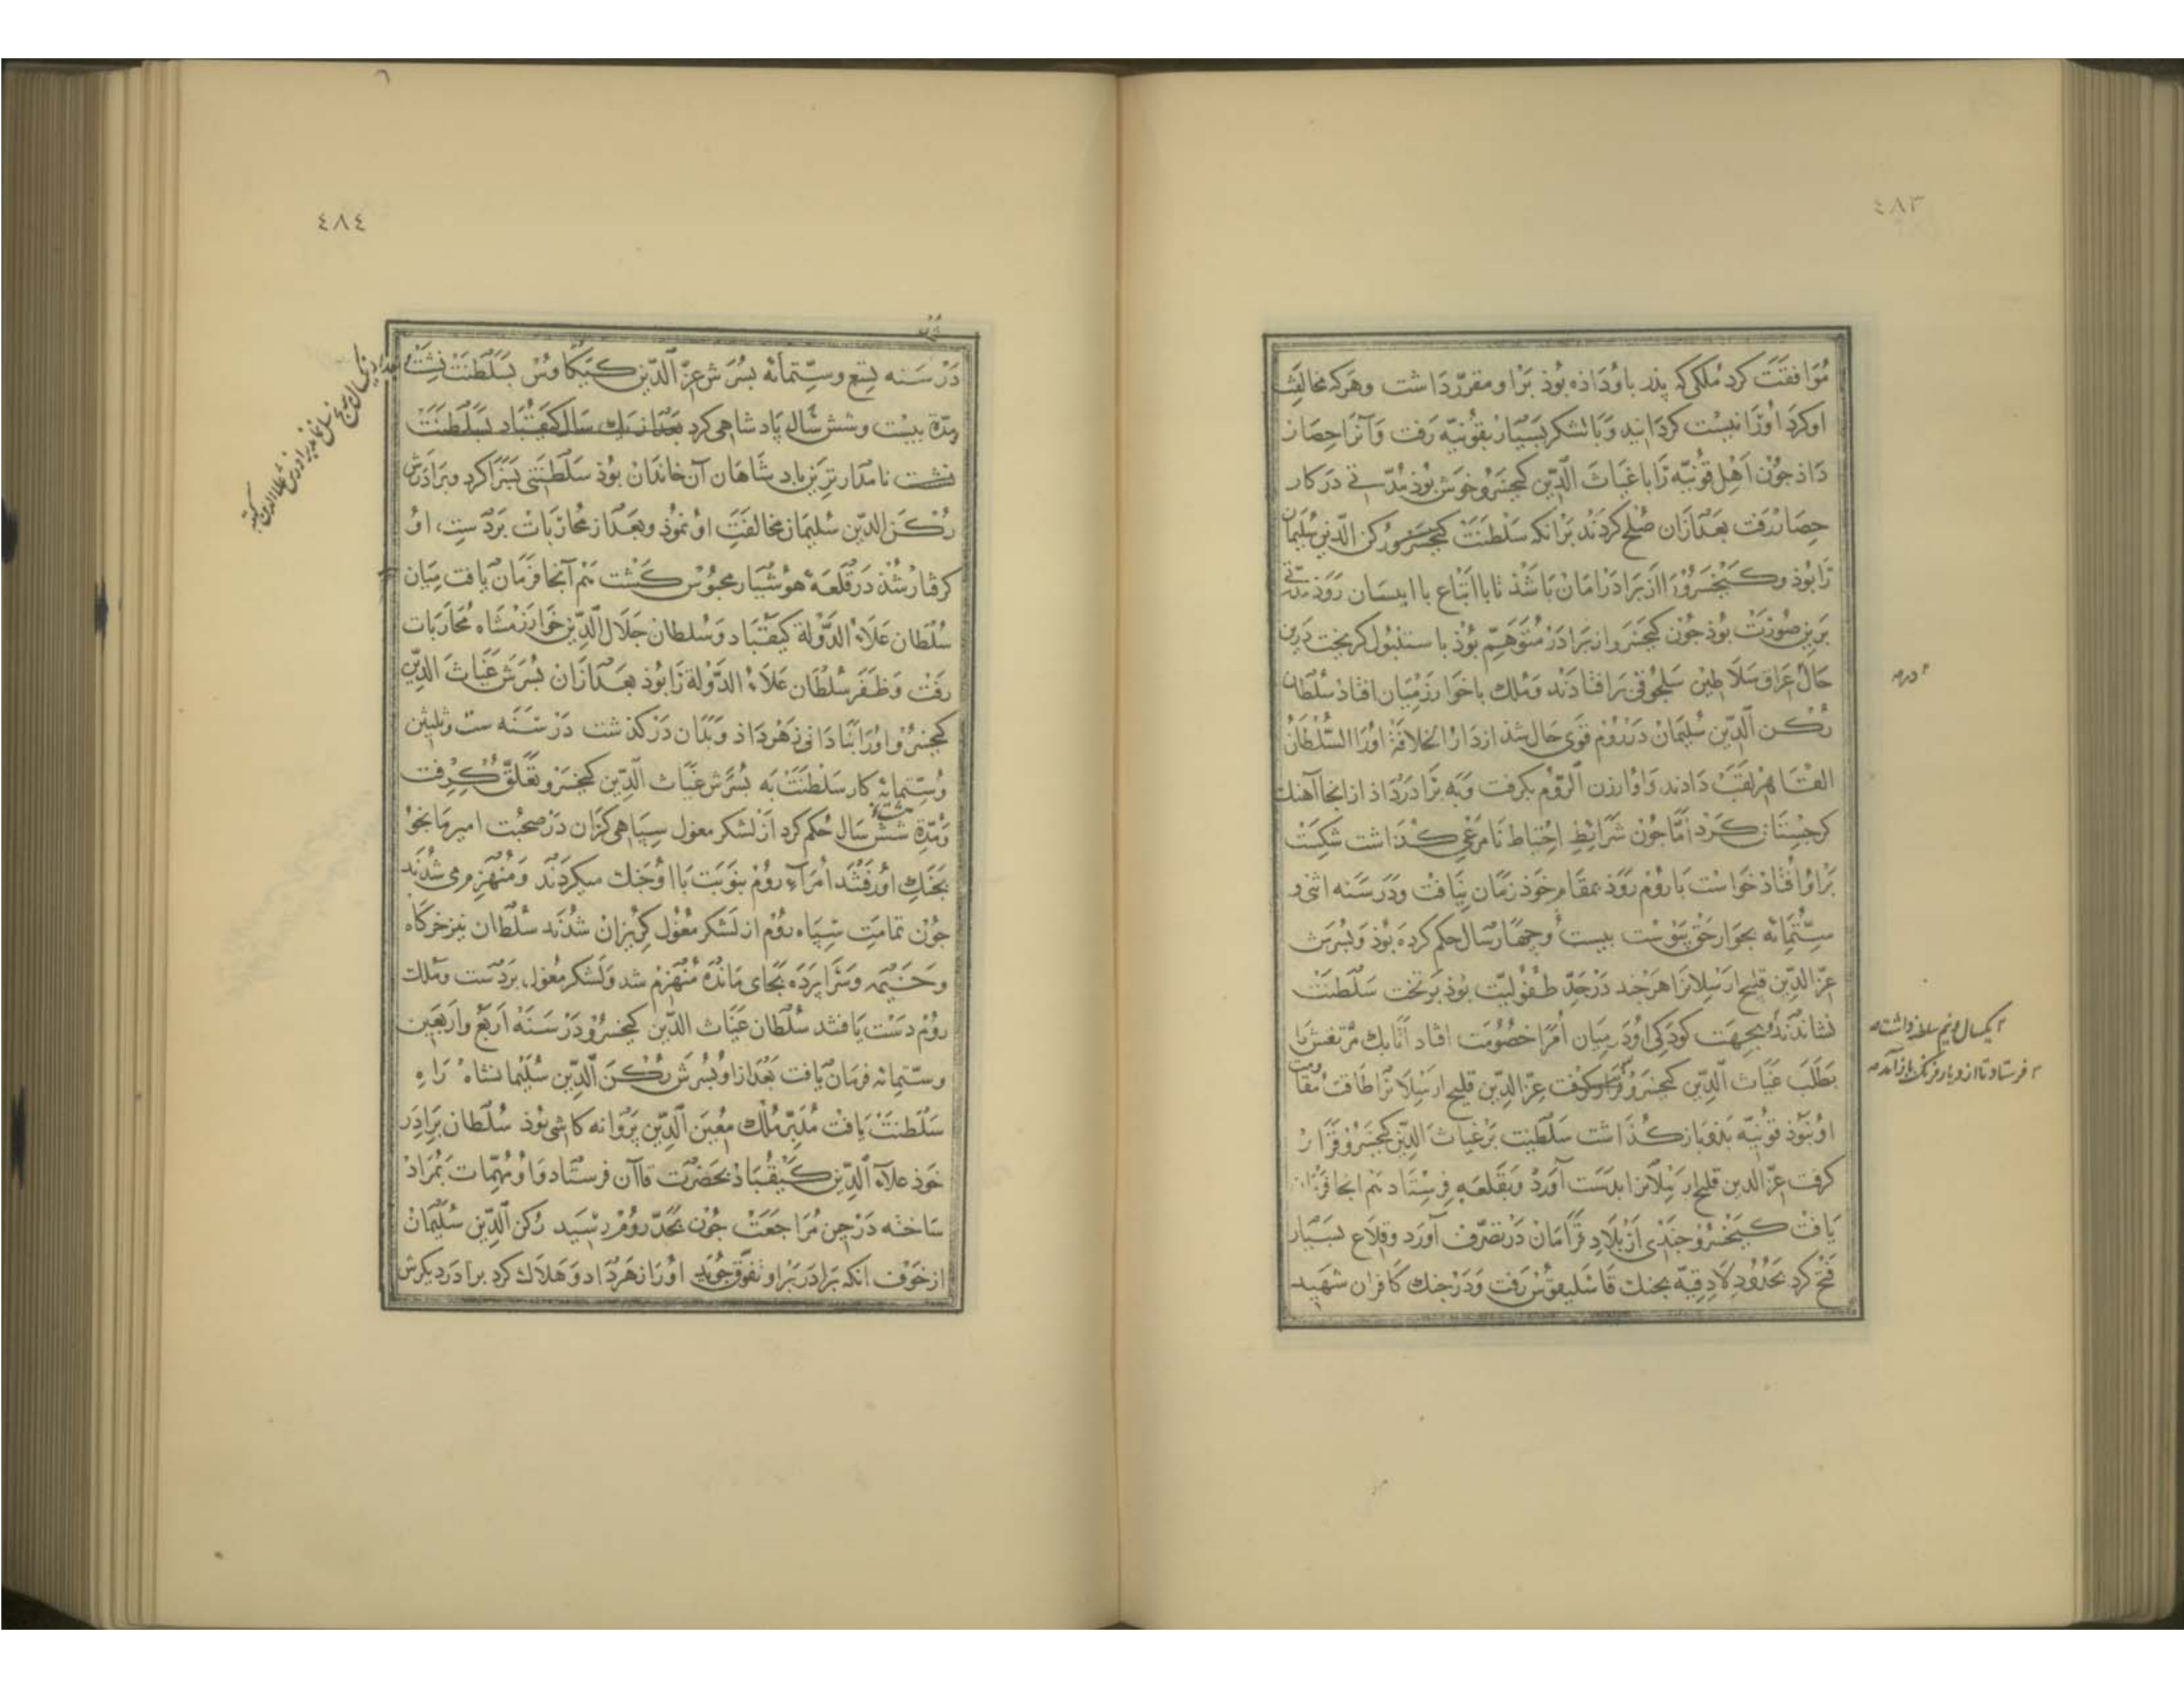 ٤٨٣
موافقت کرد ملکی که پذر باو داذه بوذ برا و مقرر داشت وهرکه مخالفت
او کرد اورا نیست کردانید وبا لشکر بسیار بقونیه رفت وآنرا حصار
داذ جون اهل قونیه را با غیاث الدین کیخسرو خوش بوذ مدتی در کار
حصار رفت بعد ازان صلح کردند برانکه سلطنت کیخسرو رکن الدین سلیمان
را بوذ وکیخسرو را از برادر امان باشذ تا با اتباع با ایسان روذ مدتی
برین صورت بوذ جون کیخسرو از برادر متوهم بوذ با ستنبول کریخت درین
حال عراق سلاطین سلجوقی برافتادند وملک باخوارزمیان افتاد سلطان
رکن الدین سلیمان در روم قوی حال شذ از دار الخلافة اورا السلطان
القاهر لقب دادند واو ارزن الروم بکرفت وبه برادر داذ از انجا آهنک
کرجستان کرد اما جون شرایط احتیاط نامرعی کذاشت شکست
براو افتاد خواست با روم روذ بمقام خوذ زمان نیافت ودر سنه اثنی و
ستمائه بجوار حق پیوست بیست وجهار سال حکم کرده بوذ وپسرش
عز الدین قلیج ارسلانرا هر جند در حد طفولیت بوذ بر تخت سلطنت
نشاندند وبجهت کودکی او در میان امرا خصومت افتاد اتابک مرتفش با
بطلب غیاث الدین کیخسرو عز الدین قلیج ارسلانرا طاقت مقاومت
او نبوذ قونیه بذو باز کذاشت سلطنت بر غیاث الدین کیخسرو قرار
کرفت عز الدین قلیج ارسلانرا بدست آورد وبقلعه فرستاد هم انجا فرمان
یافت کیخسرو جندی از بلاد قرامان در تصرف آورد وقلاع بسیار
فتح کرد بحدود لادقیه بجنک فاسلیقوس رفت ودر جنک کافران شهید
یکسال ونیم سلطنه داشت
فرستاد تا از دیار فرنک باز آمد
٤٨٤
در سنه تسع وستمائه پسرش عز الدین کیکاوس بسلطنت نشست
مدة بیست وشش سال پاد شاهی کرد بعد از یک سال کیقباد بسلطنت
نشست نامدارترین پاد شاهان آن خاندان بوذ سلطنتی بسزا کرد وبرادرش
رکن الدین سلیمان مخالفت او نموذ وبعد از محاربات بر دست او
کرفتار شذ در قلعه هوشیار محبوس کشت هم آنجا فرمان یافت میان
سلطان علاء الدولة کیقباد وسلطان جلال الدین خوارزمشاه محاربات
رفت وظفر سلطان علاء الدولة را بوذ بعد ازان پسرش غیاث الدین
کیخسرو اورا بنادانی زهر داذ وبدان درکذشت در سنه ست وثلثین
وستمائه کار سلطنت به پسرش غیاث الدین کیخسرو تعلق کرفت
ومدة شش سال حکم کرد از لشکر مغول سپاهی کران در صحبت امیر مایجو
بجنک او رفتند امراء روم بنوبت با او جنک میکردند ومنهزم می شدند
جون تمامت سپاه روم از لشکر مغول کریزان شدند سلطان نیز خرکاه
وخیمه وسرا پرده بجای مانده منهزم شد ولشکر مغول بر دست وملک
روم دست یافتند سلطان غیاث الدین کیخسرو در سنه اربع واربعین
وستمائه فرمان یافت بعد ازاو پسرش رکن الدین سلیمانشاه راه
سلطنت یافت مدبر ملک معین الدین پروانه کاشی بوذ سلطان برادر
خوذ علاء الدین کیقباد بحضرت قاآن فرستاد واو مهمات بمراد
ساخته در حین مراجعت جون بحد روم رسید رکن الدین سلیمان
از خوف انکه برادر براو تفوق جوید اورا زهر داد وهلاک کرد برادر دیکرش